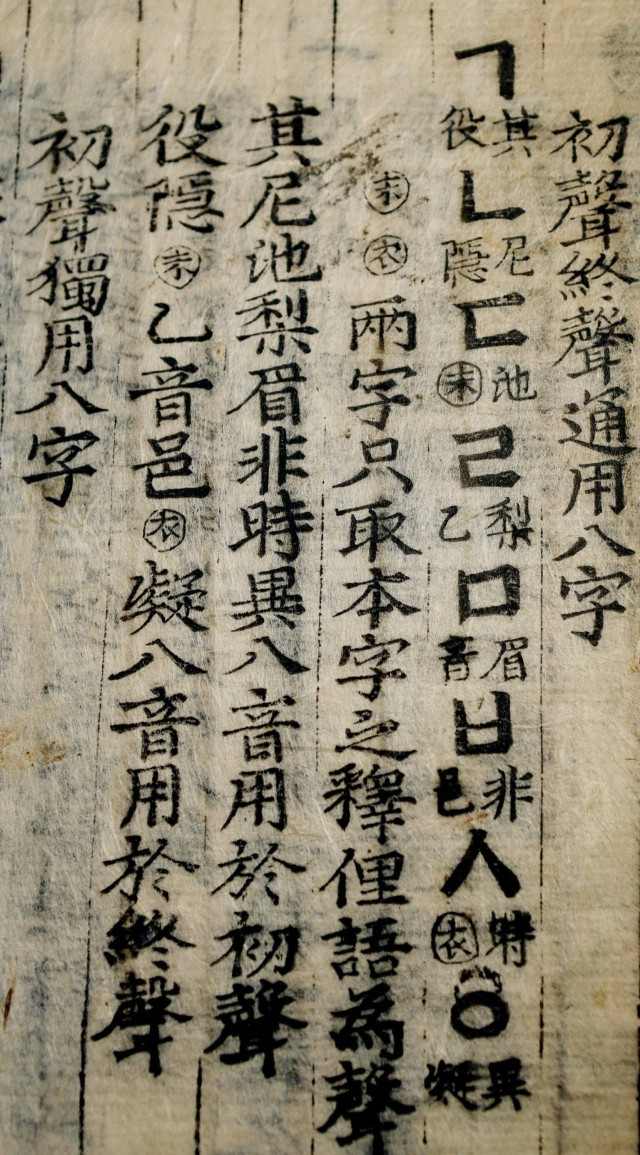 初聲終聲通用八字
ㄱ其役ㄴ尼隱ㄷ池末ㄹ梨乙ㅁ眉音ㅂ非邑ㅅ時衣ㆁ異凝
末衣兩字只取本字之釋俚語為聲
其尼池梨眉非時異八音用於初聲
役隱末乙音邑衣凝八音用於終聲
初聲獨用八字